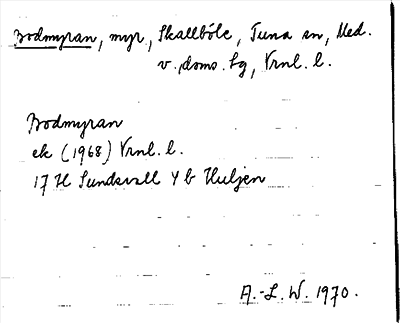 Bodmyran, myr, Skallböle, Tuna sn, Med.
v. doms. sg, Vrnl. l.
Bodmyran
ek (1968) Vrnl. l.
17 H Sundsvall 4 b Huljen
A.-L. W. 1970.